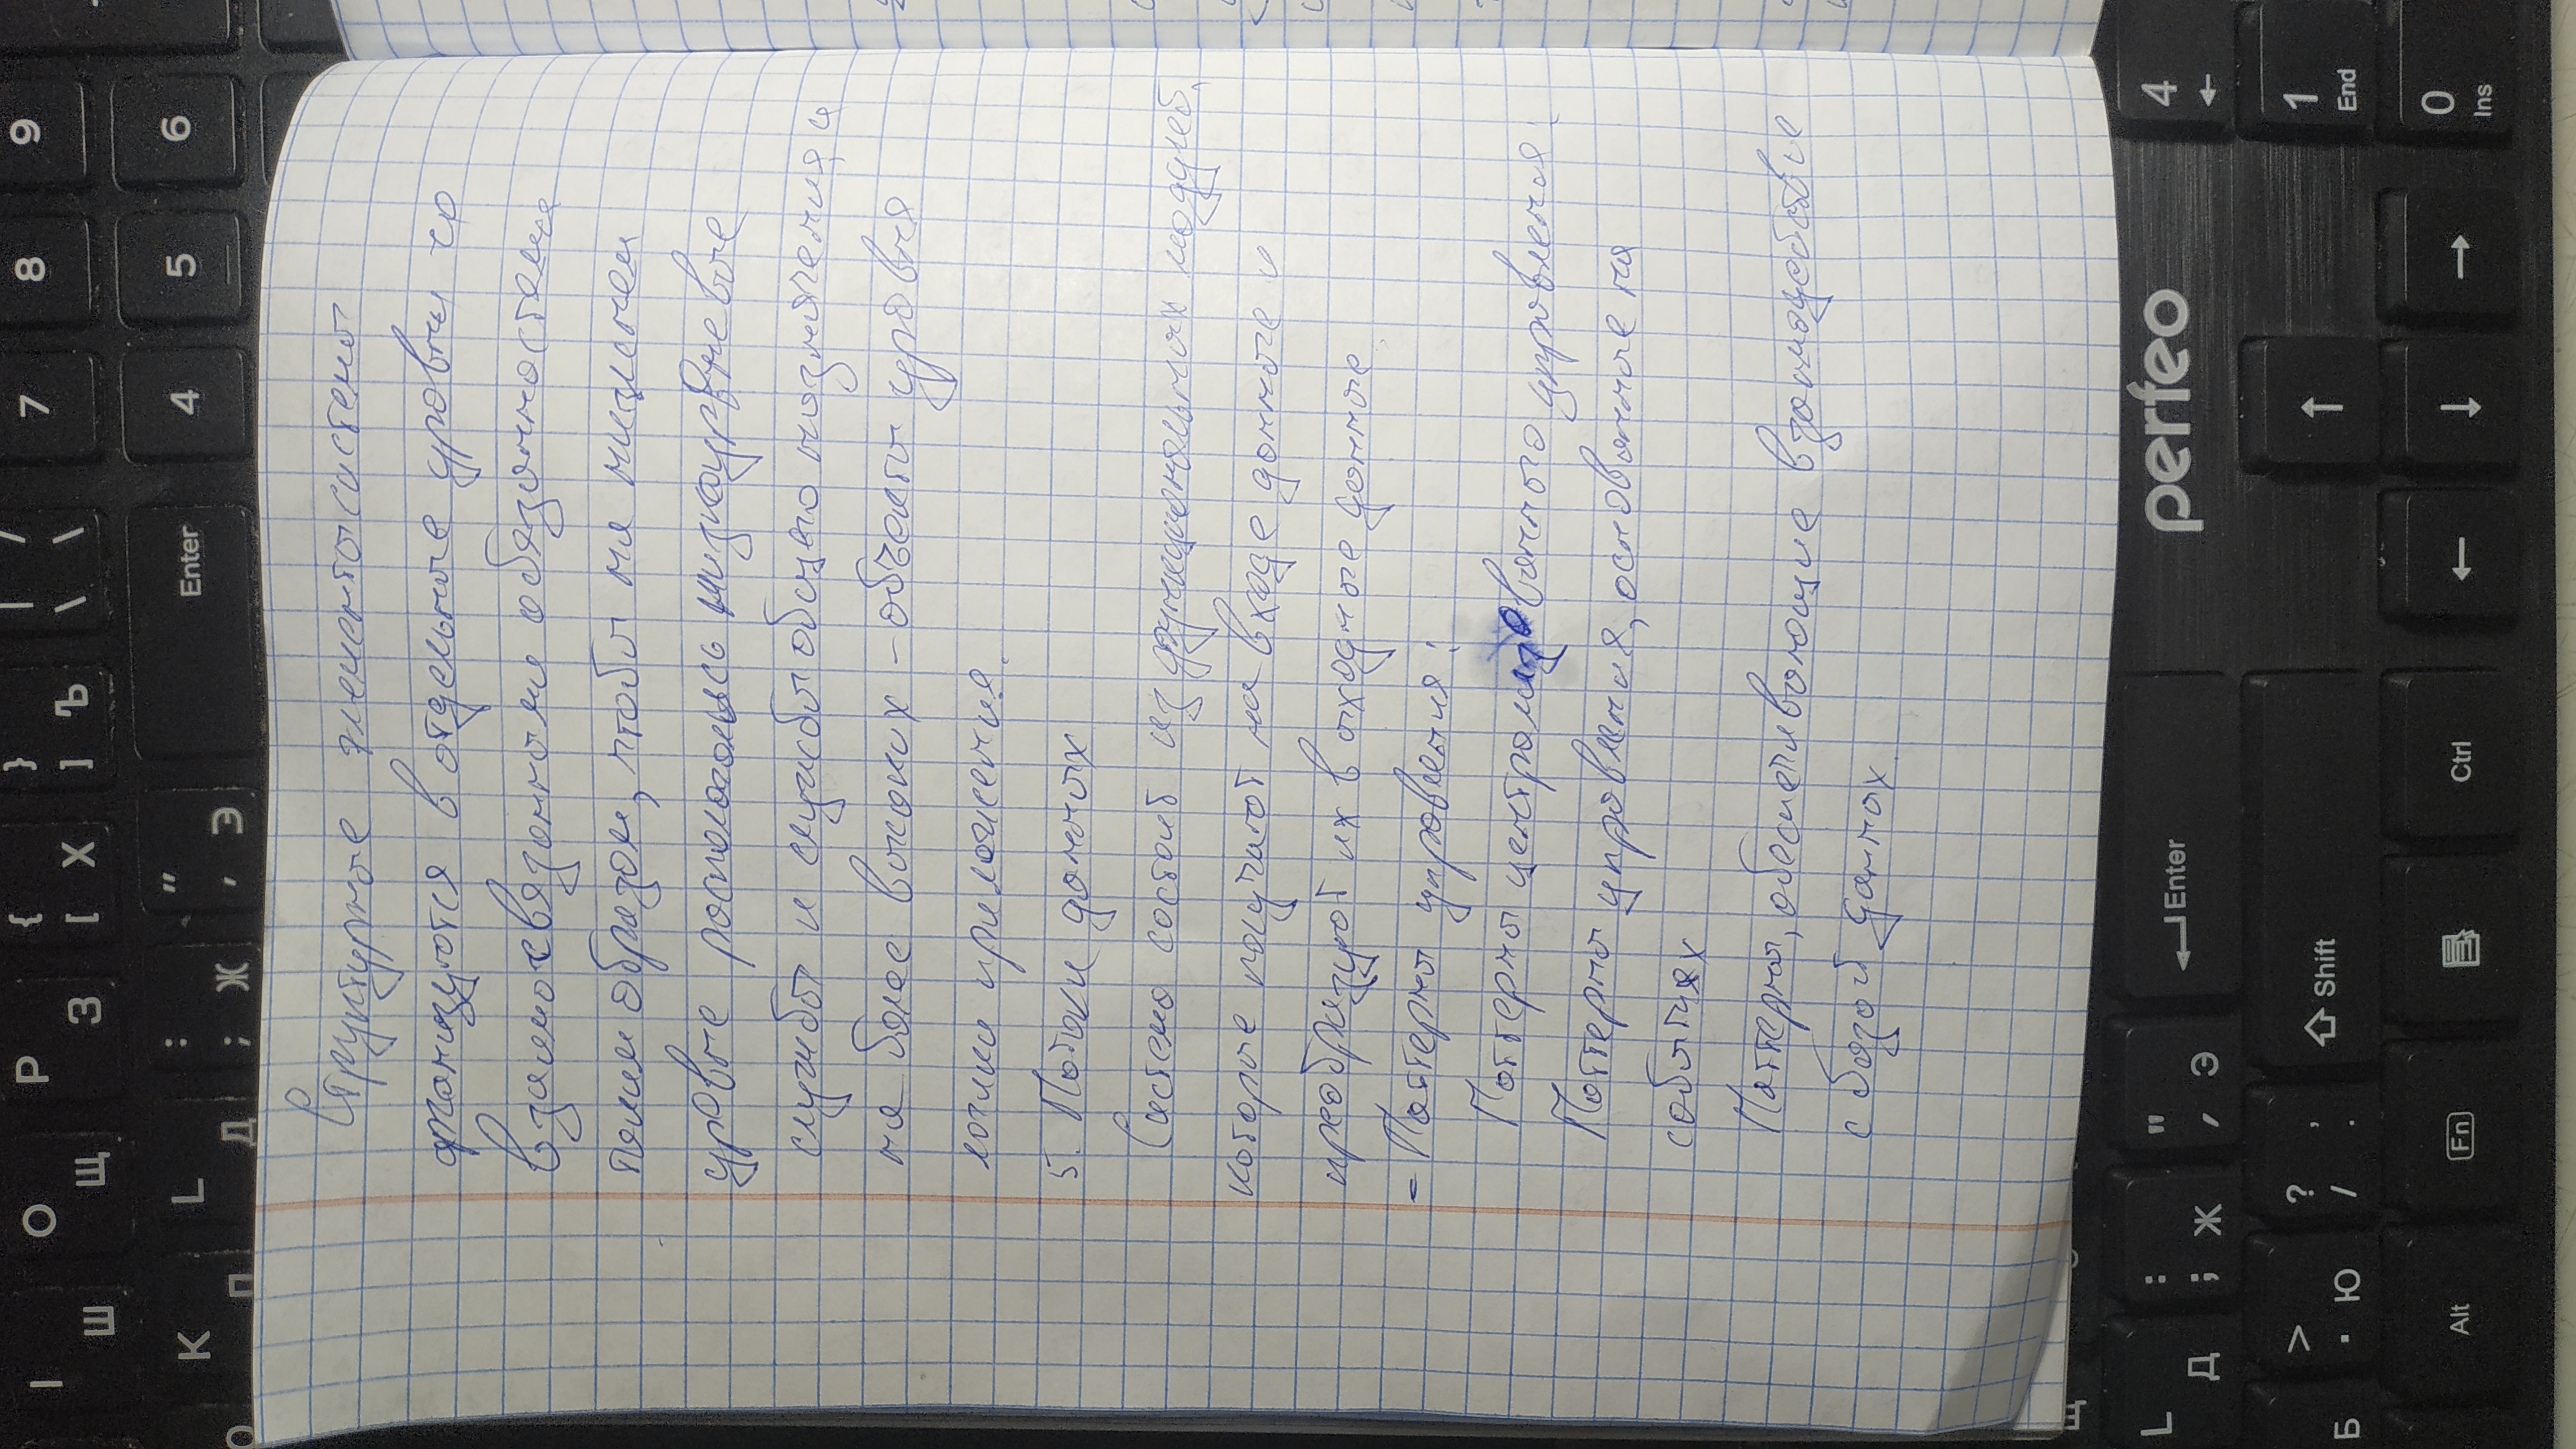 I O P { } | / 7 8 9
Ш Щ З [ Х ] Ъ \ \
K L : " Enter 4 5 6
О Л Д ; Ж ' Э
Структурные элементы системы
организуются в отдельные уровни со
взаимосвязанными обязанностями
таким образом, чтобы на нижнем
уровне располагались низкоуровневые
службы и службы общего назначения, а
на более высоких - объекты уровня
логики приложения.
5. Потоки данных
Система состоит из функциональных модулей,
которые получают на входе данные и
преобразуют их в выходные данные
- Паттерны управления:
Паттерны централизованного управления.
Паттерны управления, основанные на
событиях
Паттерны, обеспечивающие взаимодействие
с базой данных
L : " Enter perfeo 4
Д ; Ж ' Э
> ? , Shift 1
Б . Ю / . End
Alt Fn Ctrl 0
Ins